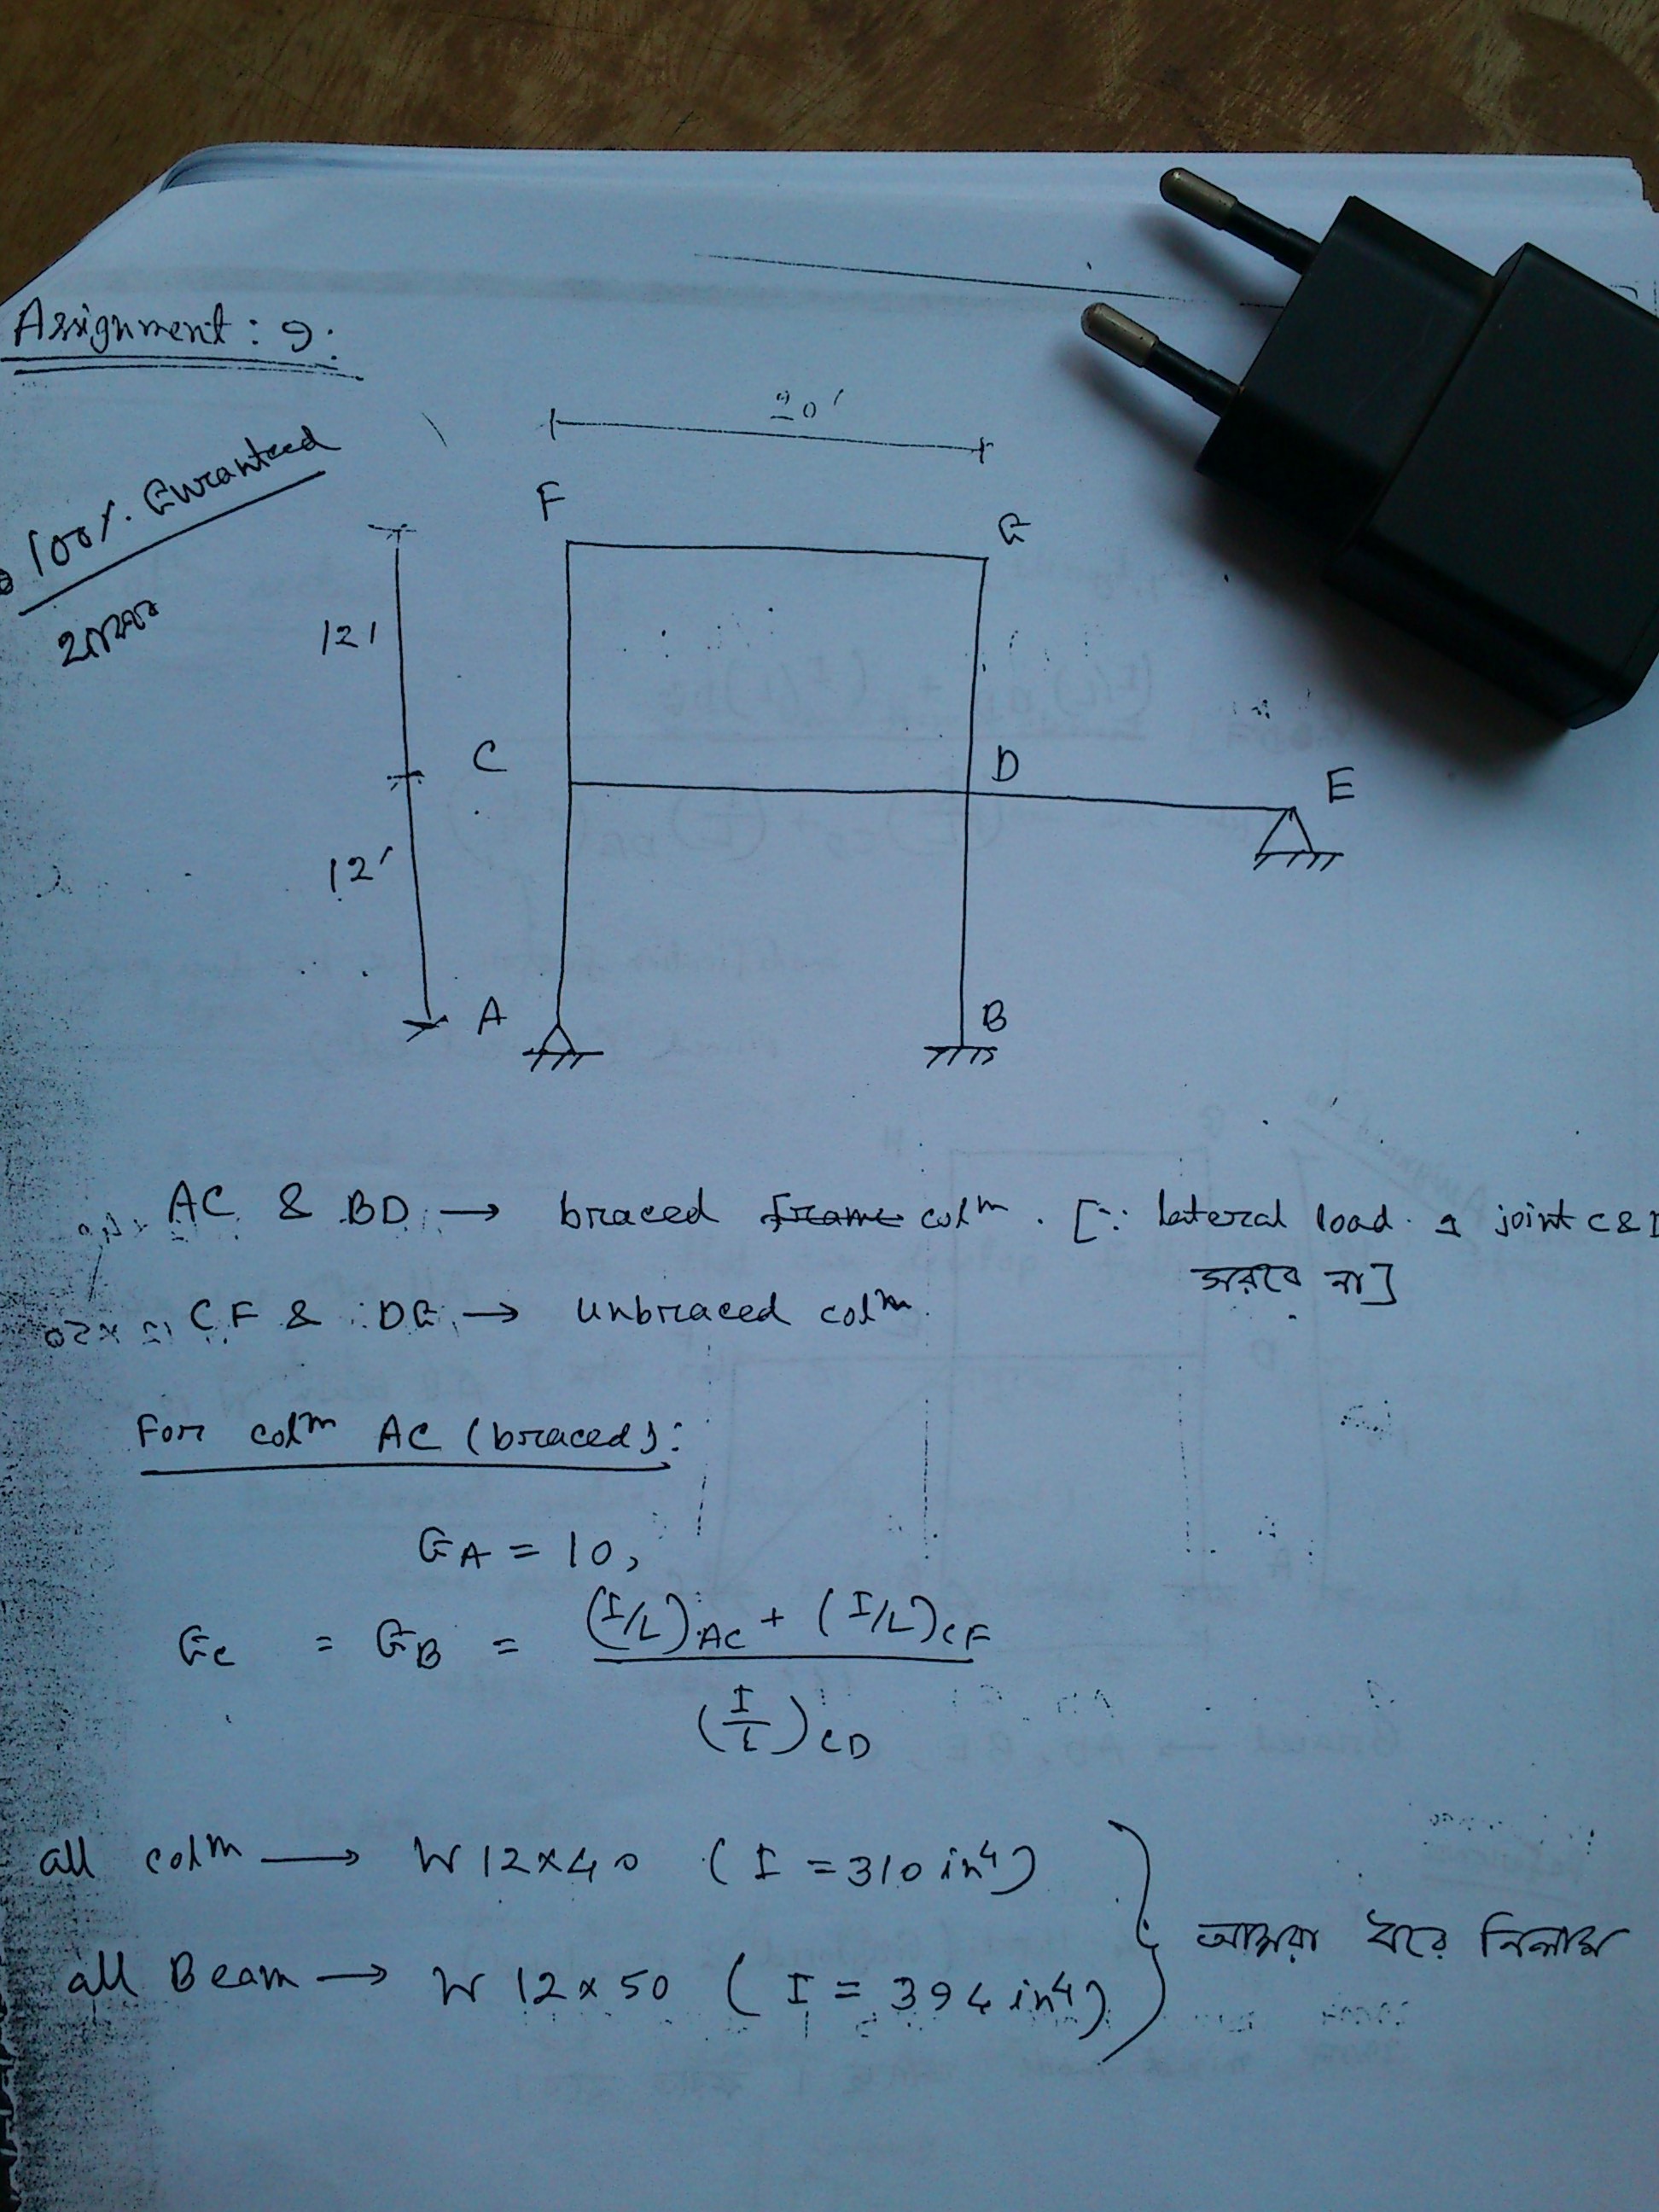 Assignment : 9.
100%. Guranteed
20'
F
G
12'
C
D
E
12'
A
B
AC & BD → braced frame colm. [∵ lateral load এ joint C &
সরবে না]
CF & DG → Unbraced colm.
For colm AC (braced):
GA = 10,
Gc = GB = (I/L)AC + (I/L)CF
(I/L)CD
all colm → W 12×40 (I = 310 in4)
all Beam → W 12×50 (I = 394 in4)
আমরা ধরে নিলাম